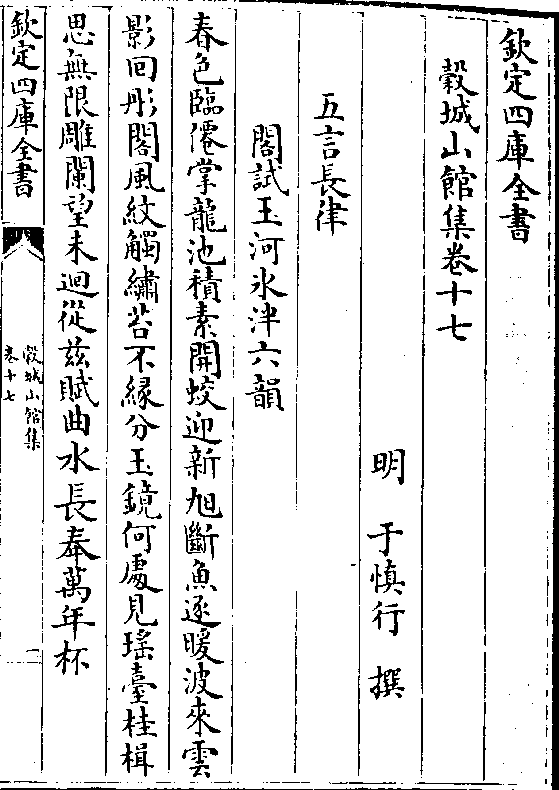 欽定四庫全書
穀城山館集卷十七
明 于慎行 撰
五言長律
閣試玉河氷泮六韻
春色臨僊掌龍池積素開蛟迎新旭斷魚逐暖波來雲
影回彤閣風紋觸繡苔不緣分玉鏡何處見瑤臺桂楫
思無限雕闌望未迴從兹賦曲水長奉萬年杯
欽定四庫全書
穀城山館集
卷十七
一